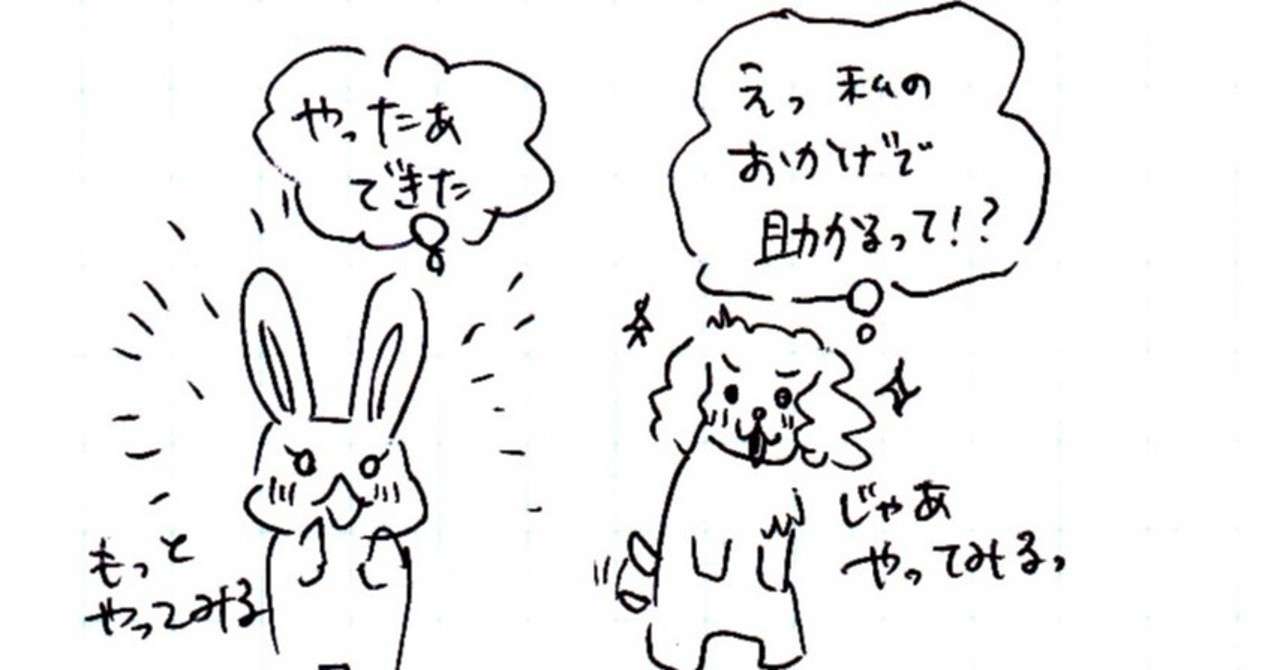 やったあ
できた
もっと
やってみる
えっ 私の
おかげで
助かるって!?
じゃあ
やってみるっ